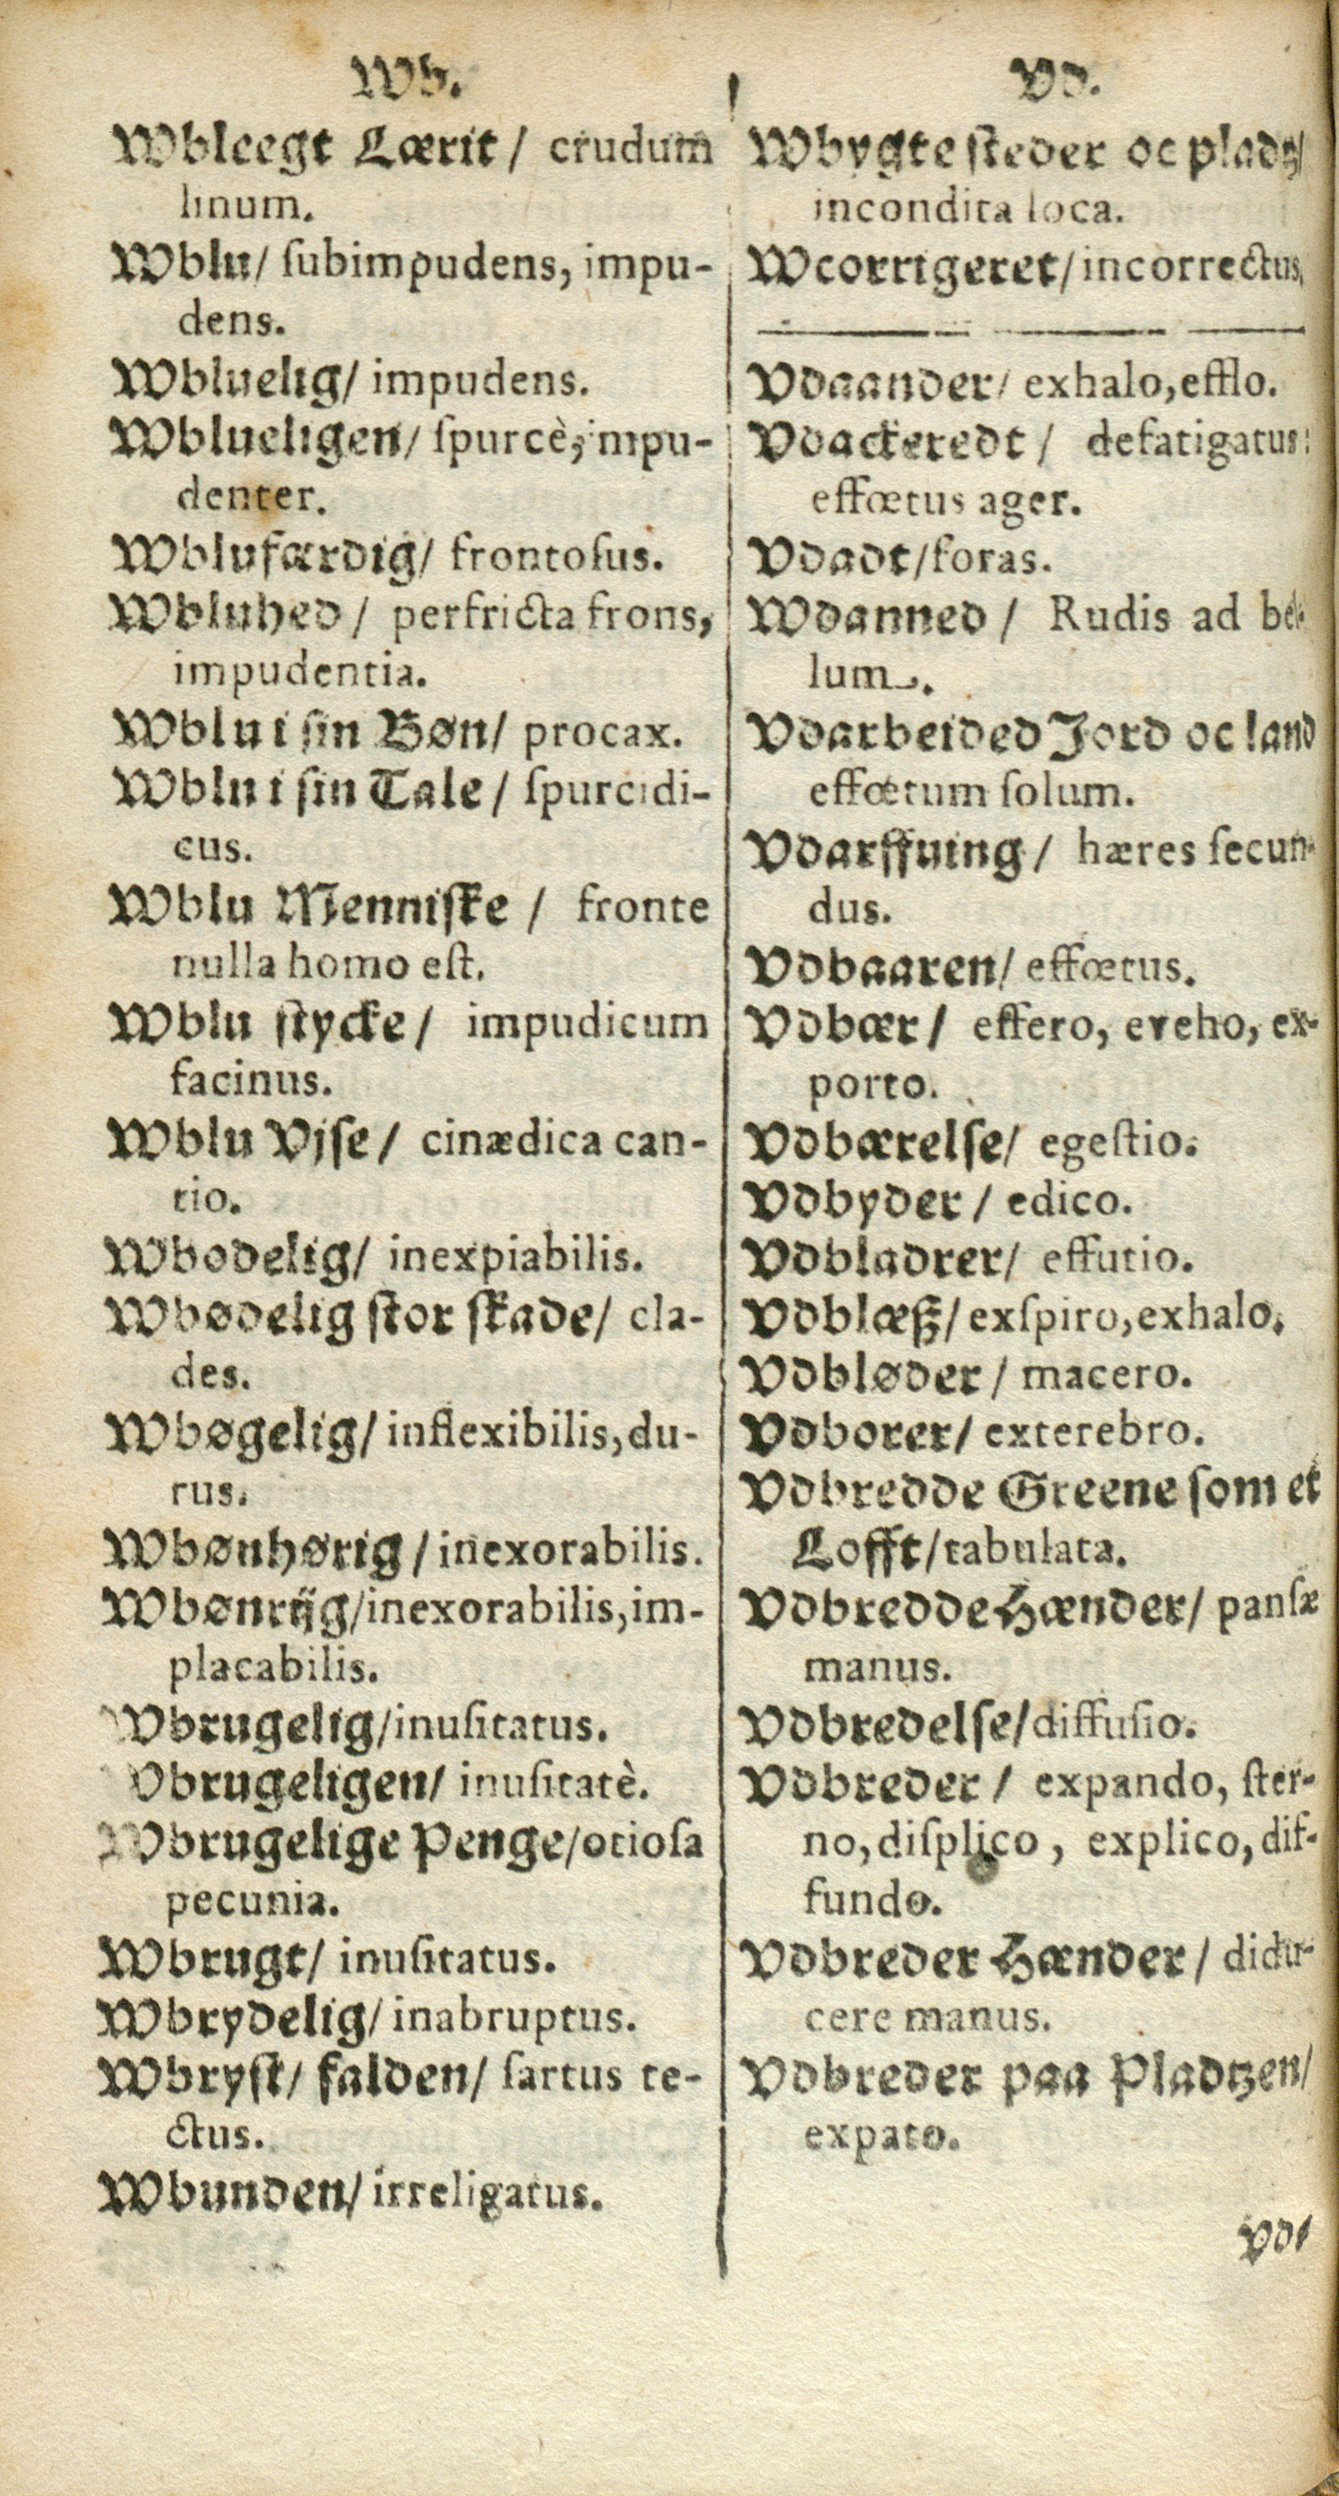 Wb.
Wbleegt Lærit / crudum
linum.
Wblu/ ſubimpudens, impu-
dens.
Wbluelig/ impudens.
Wblueligen/ ſpurcè, impu-
denter.
Wblufærdig/ frontoſus.
Wbluhed / perfricta frons,
impudentia.
Wblu i ſin Bøn/ procax.
Wblu i ſin Tale / ſpurcidi-
cus.
Wblu Menniſke / fronte
nulla homo eſt.
Wblu ſtycke / impudicum
facinus.
Wblu Vjſe / cinædica can-
tio.
Wbodelig/ inexpiabilis.
Wbødelig ſtor ſkade/ cla-
des.
Wbøgelig/ inflexibilis, du-
rus.
Wbønhørig / inexorabilis.
Wbønrijg/inexorabilis, im-
placabilis.
Wbrugelig/inuſitatus.
Wbrugeligen/ inuſitatè.
Wbrugelige Penge/otioſa
pecunia.
Wbrugt/ inuſitatus.
Wbrydelig/ inabruptus.
Wbryſt/ falden/ ſartus te-
ctus.
Wbunden/ irreligatus.
Vd.
Wbygte ſteder oc pladtz/
incondita loca.
Wcorrigeret/ incorrectus.
Vdaander/ exhalo, efflo.
Vdackeredt / defatigatus:
effœtus ager.
Vdadt/foras.
Wdanned / Rudis ad bel-
lum.
Vdarbeided Jord oc land
effœtum ſolum.
Vdarffuing / hæres ſecun-
dus.
Vdbaaren/ effœtus.
Vdbær / effero, eveho, ex-
porto.
Vdbærelſe/ egeſtio.
Vdbyder / edico.
Vdbladrer/ effutio.
Vdblæß/ exſpiro, exhalo.
Vdbløder / macero.
Vdborer/ exterebro.
Vdbredde Greene ſom et
Lofft/tabulata.
Vdbredde Hænder/ panſæ
manus.
Vdbredelſe/diffuſio.
Vdbreder / expando, ſter-
no, diſplico, explico, dif-
fundo.
Vdbreder Hænder / didu-
cere manus.
Vdbreder paa Pladtzen/
expato.